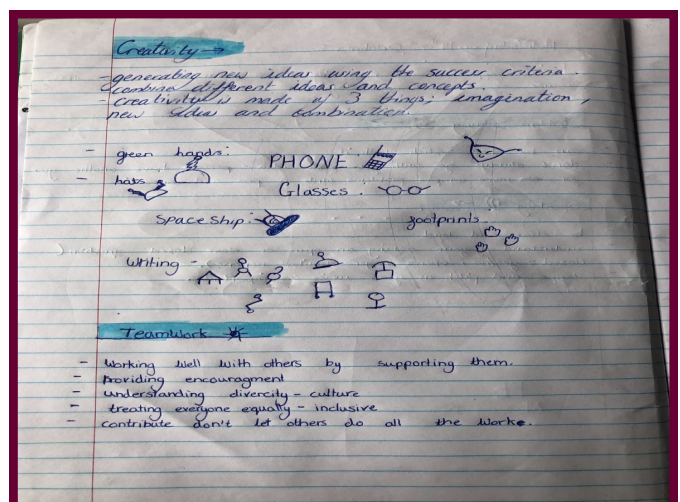 Creativity →
- generating new ideas using the success criteria.
combine different ideas and concepts.
- creativity is made of 3 things; imagination,
new ideas and combination.
- green hands:
PHONE
- hats
Glasses.
Spaceship:
footprints.
Writing -
TeamWork
- Working well with others by supporting them.
- Providing encouragment
- understanding divercity - culture
- treating everyone equally - inclusive
- contribute don't let others do all the worke.